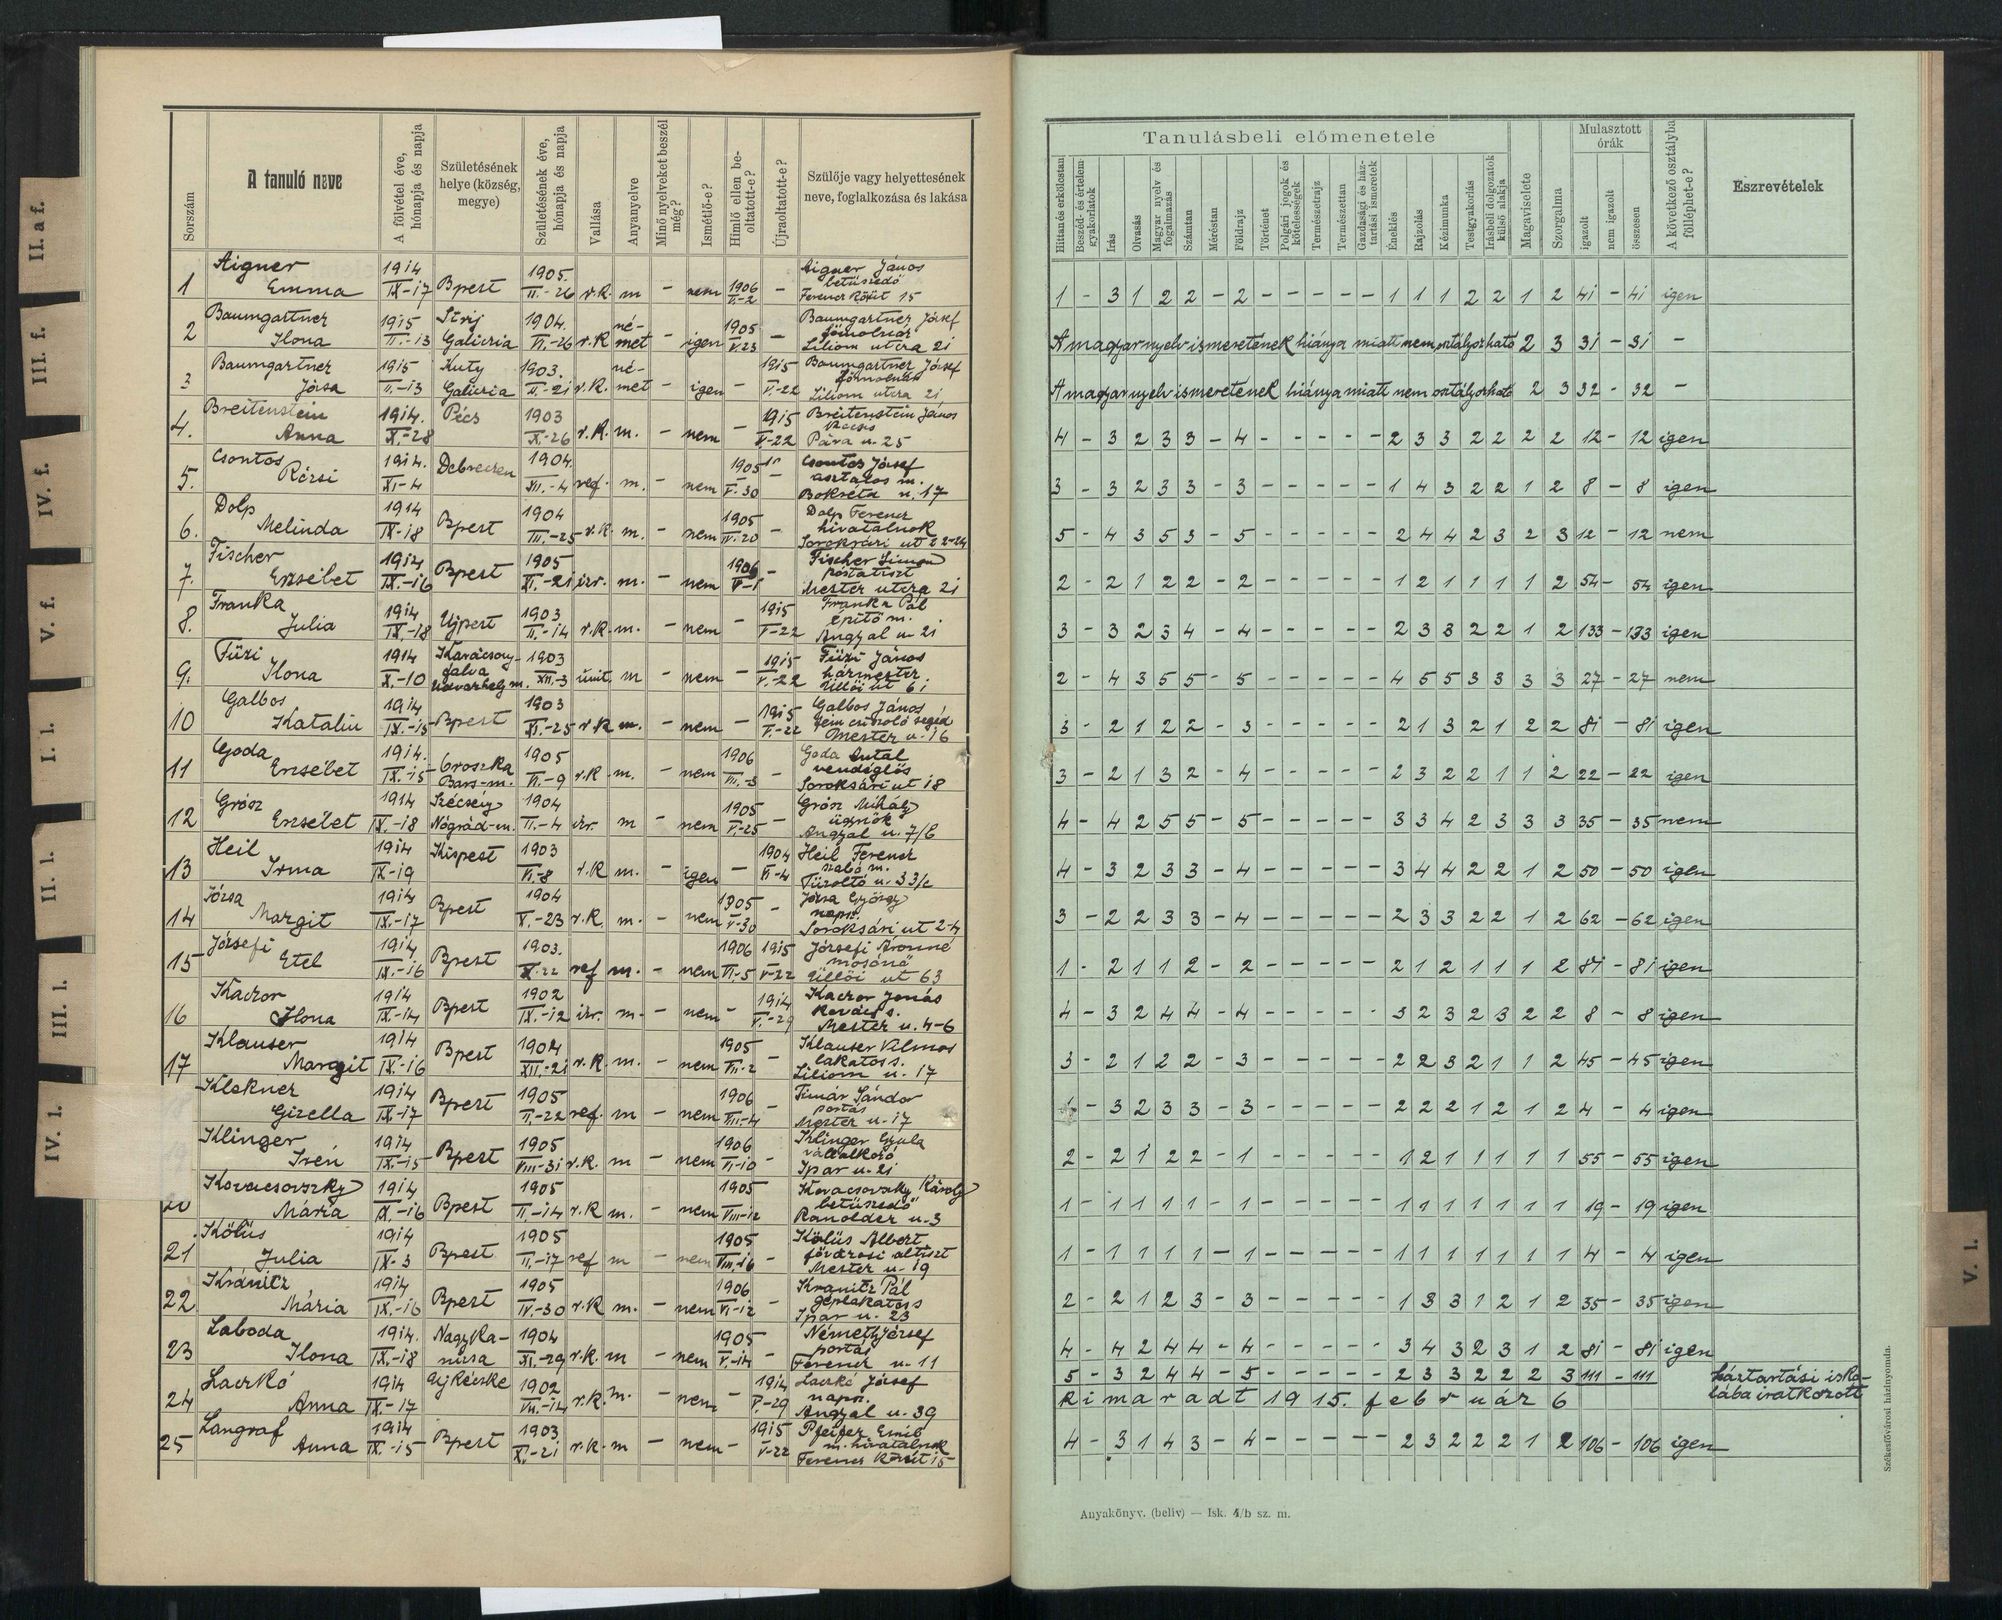 II. a f.
III. f.
IV. f.
V. f.
I. l.
II. l.
III. l.
IV. l.
V. l.
Sorszám
A tanuló neve
A fölvétel éve, hónapja és napja
Születésének helye (község, megye)
Születésének éve, hónapja és napja
Vallása
Anyanyelve
Minő nyelveket beszél még?
Ismétlő-e?
Himlő ellen be-oltatott-e?
Újraoltatott-e?
Szülője vagy helyettesének neve, foglalkozása és lakása
1 Aigner Emma 1914 IX-17 Bpest 1905. II.-26 r.k. m - nem 1906 II-2 - Aigner János betűszedő Ferencz körút 15
2 Baumgartner Ilona 1915 II.-13 Strij Galicia 1904. VI.-26 r.k né-met - igen 1905 V.23 - Baumgartner József főmolnár Liliom utcza 21
3 Baumgartner Józsa 1915 II.-13 Kuty Galicia 1903. II.-21 r.k. né-met - igen - 1915 V.-22 Baumgartner József főmolnár Liliom utcza 21
4. Breitenstein Anna 1914. X.-28 Pécs 1903 X.-26 r.k. m. - nem - 1915 V-22 Breitenstein János Páva u. 25
5. Csontos Rózsi 1914. XI-4 Debreczen 1904. XII.-4 ref. m. - nem 1905 V.-30 - Csontos József asztalos m. Bokréta u. 17
6. Dolp Melinda 1914 IX-18 Bpest 1904 III.-25 r.k. m. - nem 1905 IV.-20 - Dolp Ferencz hivatalnok Soroksári ut 22-24
7. Fischer Erzsébet 1914 IX.-16 Bpest 1905 VI.-21 izr. m. - nem 1906 IV-1 - Fischer Simon postatiszt Mester utcza 21
8. Franka Julia 1914 IX.-18 Ujpest 1903 II.-14 r.k. m. - nem - 1915 V-22 Franka Pál építő m. Angyal u. 21
9. Füzi Ilona 1914 X.-10 Karácsony-falva Udvarhely m. 1903 XII.-3 unit. m - nem - 1915 V.-22 Füzi János házmester Üllői ut 61
10 Galbos Katalin 1914 IX.-15 Bpest 1903 XI.-25 r.k m. - nem - 1915 V.-22 Galbos János segéd Mester u. 16
11 Goda Erzsébet 1914. IX.-15 Oroszka Bars-m. 1905 VI.-9 r.k m. - nem 1906 VI.-3 - Goda Antal vendéglős Soroksári ut 18
12 Grósz Erzsébet 1914 IX.-18 Szécsény Nógrád-m. 1904 II.-4 izr. m - nem 1905 V-25 - Grósz Mihály ügynök Angyal u. 7/b
13 Heil Irma 1914 IX-19 Kispest 1903 VI-8 r.k m. - igen - 1904 VI-4 Heil Ferencz szabó m. Tűzoltó u. 33/c
14 Józsa Margit 1914 IX.-17 Bpest 1904 X.-23 r.k m. - nem 1905 V-30 - Józsa György naps. Soroksári ut 2-4
15 Józsefi Etel 1914 IX.-16 Bpest 1903. X-22 ref m. - nem 1906 VI.-5 1915 V-22 Józsefi Áronné mosónő Üllői ut 63
16 Kaczor Ilona 1914 IX.-14 Bpest 1902 IX.-12 izr. m. - nem - 1914 V.-29 Kaczor Jónás kovács s. Mester u. 4-6
17 Klauser Margit 1914 IX.-16 Bpest 1904 XII.-21 r.k. m. - nem 1905 VII.-2 - Klauser Vilmos lakatos s. Liliom u. 17
Klekner Gizella 1914 IX-17 Bpest 1905 II.-22 ref. m - nem 1906 VIII.-4 - Timár Sándor portás Mester u. 17
Klinger Irén 1914 IX.-15 Bpest 1905 VIII-31 r.k. m - nem 1906 VI-10 - Klinger Gyula vállalkozó Ipar u. 21
20 Kovacsovszky Mária 1914 IX.-16 Bpest 1905 II.-14 r.k m. - nem 1905 VIII-12 Kovacsovszky Károly betűszedő Ranolder u. 3
21 Kölüs Julia 1914 IX-3 Bpest 1905 II.-17 ref m - nem 1905 VIII.-16 - Kölüs Albert fővárosi altiszt Mester u. 19
22 Kránitz Mária 1914 IX.-16 Bpest 1905 IV.-30 r.k m. - nem 1906 VI-12 - Kranitz Pál géplakatos s Ipar u. 23
23 Laboda Ilona 1914. IX.-18 Nagyka-nizsa 1904 XI.-29 r.k. m - nem 1905 V.-14 - Német József portás Ferencz u. 11
24 Laczkó Anna 1914 IX-17 Uj Kécske 1902 VII.-12 r.k. m. - nem - 1914 V-29 Laczkó József naps. Angyal u. 39
25 Langraf Anna 1914 IX.-15 Bpest 1903. X.-21 r.k. m - nem - 1915 V-22 Pfeifer Emil m. hivatalnok Ferencz körút 15
Tanulásbeli előmenetele
Hittan és erkölcstan
Beszéd- és értelemgyakorlatok
Írás
Olvasás
Magyar nyelv és fogalmazás
Számtan
Mértan
Földrajz
Történet
Polgári jogok és kötelességek
Természetrajz
Természettan
Gazdasági és ház-tartási ismeretek
Éneklés
Rajzolás
Kézimunka
Testgyakorlás
Írásbeli dolgozatok külső alakja
Magaviselete
Szorgalma
Mulasztott órák
igazolt
nem igazolt
összesen
A következő osztályba fölléphet-e?
Észrevételek
1 - 3 1 2 2 - 2 - - - - - 1 1 1 2 2 1 2 41 - 41 igen
A magyar nyelv ismeretének hiánya miatt nem osztályozható 2 3 31 - 31 -
A magyar nyelv ismeretének hiánya miatt nem osztályozható 2 3 32 - 32 -
4 - 3 2 3 3 - 4 - - - - - 2 3 3 2 2 2 2 12 - 12 igen
3 - 3 2 3 3 - 3 - - - - - 1 4 3 2 2 1 2 8 - 8 igen
5 - 4 3 5 3 - 5 - - - - - 2 4 4 2 3 2 3 12 - 12 nem
2 - 2 1 2 2 - 2 - - - - - 1 2 1 1 1 1 2 54 - 54 igen
3 - 3 2 3 4 - 4 - - - - - 2 3 3 2 2 1 2 133 - 133 igen
2 - 4 3 5 5 - 5 - - - - - 4 5 5 3 3 3 3 27 - 27 nem
3 - 2 1 2 2 - 3 - - - - - 2 1 3 2 1 2 2 81 - 81 igen
3 - 2 1 3 2 - 4 - - - - - 2 3 2 2 1 1 2 22 - 22 igen
4 - 4 2 5 5 - 5 - - - - - 3 3 4 2 3 3 3 35 - 35 nem
4 - 3 2 3 3 - 4 - - - - - 3 4 4 2 2 1 2 50 - 50 igen
3 - 2 2 3 3 - 4 - - - - - 2 3 3 2 2 1 2 62 - 62 igen
1 - 2 1 1 2 - 2 - - - - - 2 1 2 1 1 1 2 81 - 81 igen
4 - 3 2 4 4 - 4 - - - - - 3 2 3 2 3 2 2 8 - 8 igen
3 - 2 1 2 2 - 3 - - - - - 2 2 3 2 1 1 2 45 - 45 igen
- 3 2 3 3 - 3 - - - - - 2 2 2 1 2 1 2 4 - 4 igen
2 - 2 1 2 2 - 1 - - - - - 1 2 1 1 1 1 1 55 - 55 igen
1 - 1 1 1 1 - 1 - - - - - 1 1 1 1 1 1 1 19 - 19 igen
1 - 1 1 1 1 - 1 - - - - - 1 1 1 1 1 1 1 4 - 4 igen
2 - 2 1 2 3 - 3 - - - - - 1 3 3 1 2 1 2 35 - 35 igen
4 - 4 2 4 4 - 4 - - - - - 3 4 3 2 3 1 2 81 - 81 igen
5 - 3 2 4 4 - 5 - - - - - 2 3 3 2 2 2 3 111 - 111 háztartási isko-
kimaradt 1915. február 6 lába iratkozott
4 - 3 1 4 3 - 4 - - - - - 2 3 2 2 2 1 2 106 - 106 igen
Anyakönyv. (belív) — Isk. 4/b sz. m.
Székesfővárosi házinyomda.